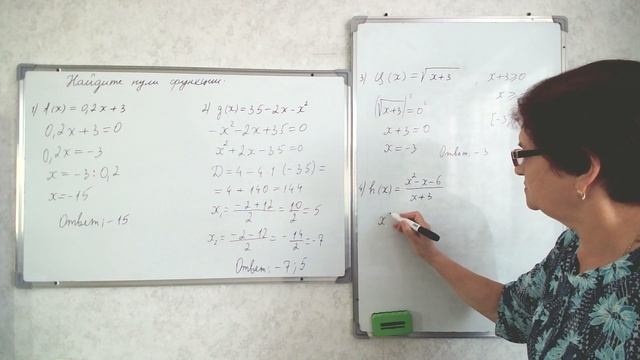 Найдите нули функции.
1) f(x) = 0,2x + 3
0,2x + 3 = 0
0,2x = -3
x = -3 : 0,2
x = -15
Ответ: -15
2) g(x) = 35 - 2x - x²
-x² - 2x + 35 = 0
x² + 2x - 35 = 0
D = 4 - 4 · 1 · (-35) =
= 4 + 140 = 144
x₁ = (-2 + 12)/2 = 10/2 = 5
x₂ = (-2 - 12)/2 = -14/2 = -7
Ответ: -7; 5
3) φ(x) = √(x + 3)
(√(x + 3))² = 0²
x + 3 = 0
x = -3
x + 3 ≥ 0
x ≥
[-3
Ответ: -3
4) h(x) = (x² - x - 6)/(x + 3)
x²